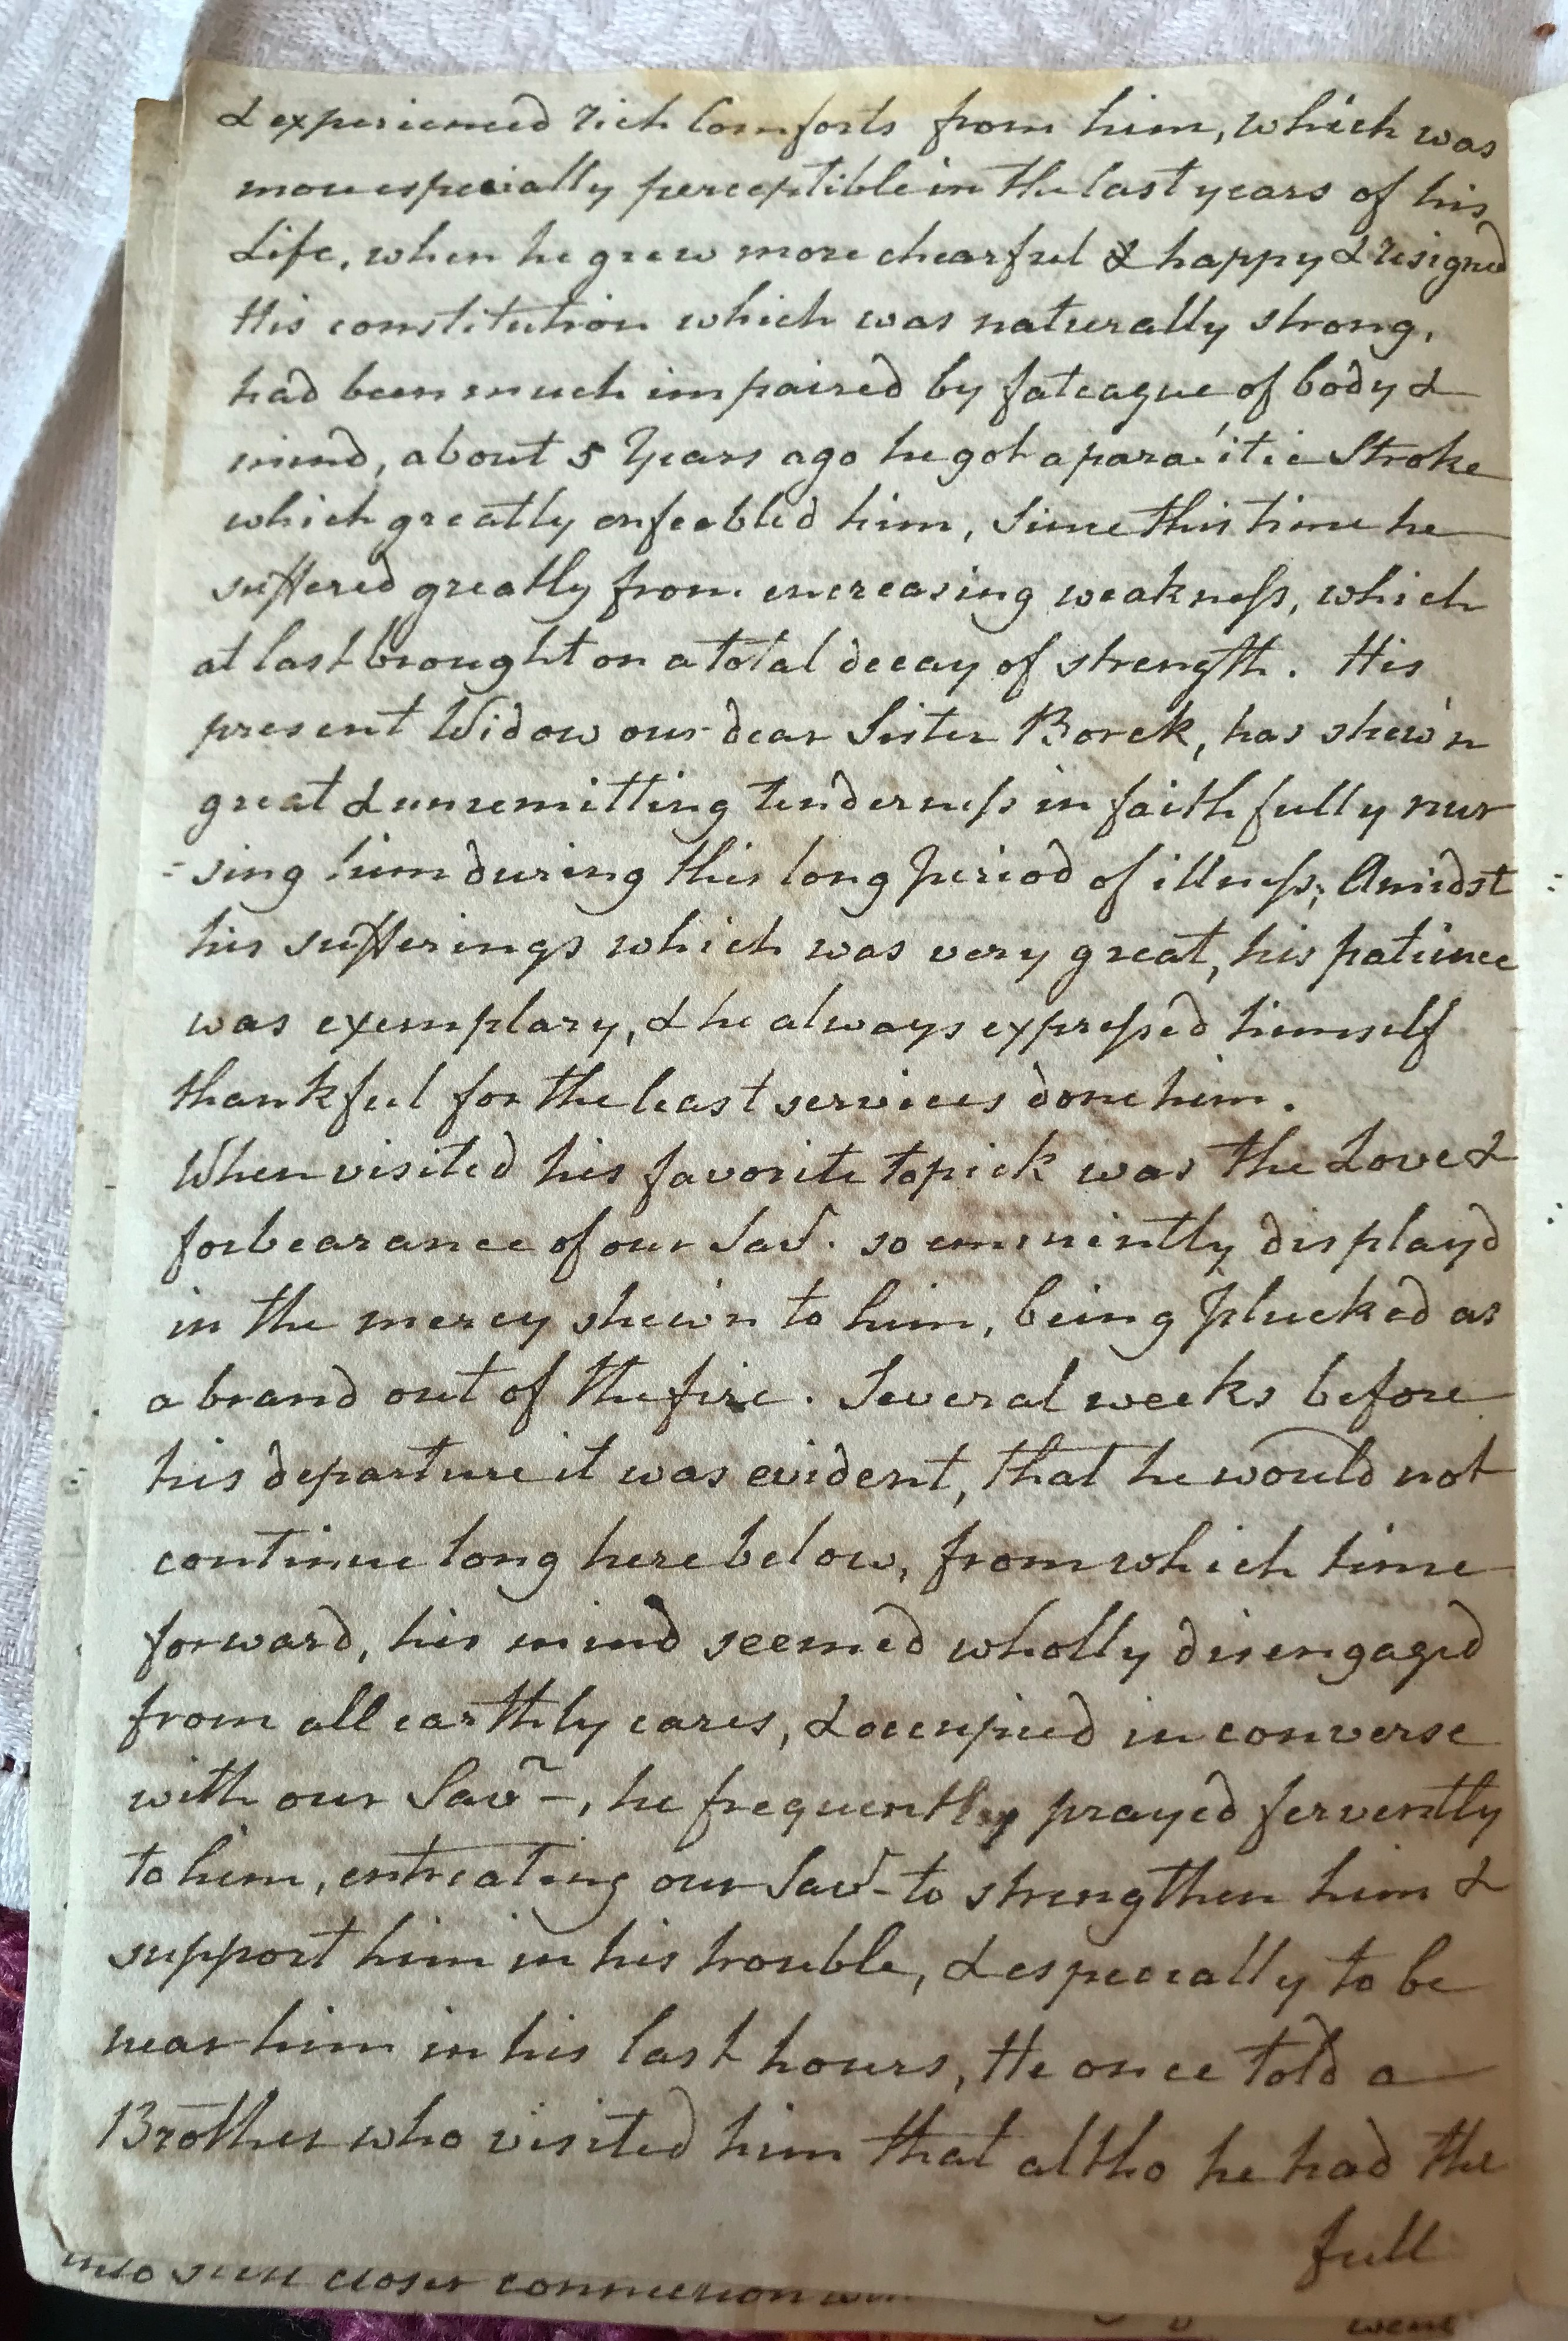 & experienced rich Comforts from him, which was
more especially perceptible in the last years of his
Life, when he grew more chearful & happy & resigned
His constitution which was naturally strong,
had been much impaired by fateague of body &
mind, about 5 Years ago he got a paralitic Stroke
which greatly enfeebled him, Since this time he
suffered greatly from encreasing weakness, which
at last brought on a total decay of strength. His
present Widow our dear Sister Borck, has shew'n
great & unremitting tenderness in faithfully nur
-sing him during this long Period of illness; Amidst
his sufferings which was very great, his patience
was exemplary, & he always expressed himself
thankful for the least services done him.
When visited his favorite topick was the Love &
forbearance of our Savr. so eminently displayd
in the mercy shew'n to him, being plucked as
a brand out of the fire. Several weeks before
his departure it was evident, that he would not
continue long here below, from which time
forward, his mind seemed wholly disengaged
from all earthly cares, & occupied in converse
with our Savr-, he frequently prayed fervently
to him, entreating our Savr- to strengthen him &
support him in his trouble, & especially to be
near him in his last hours, He once told a
Brother who visited him that altho he had the
full
closer connection
went